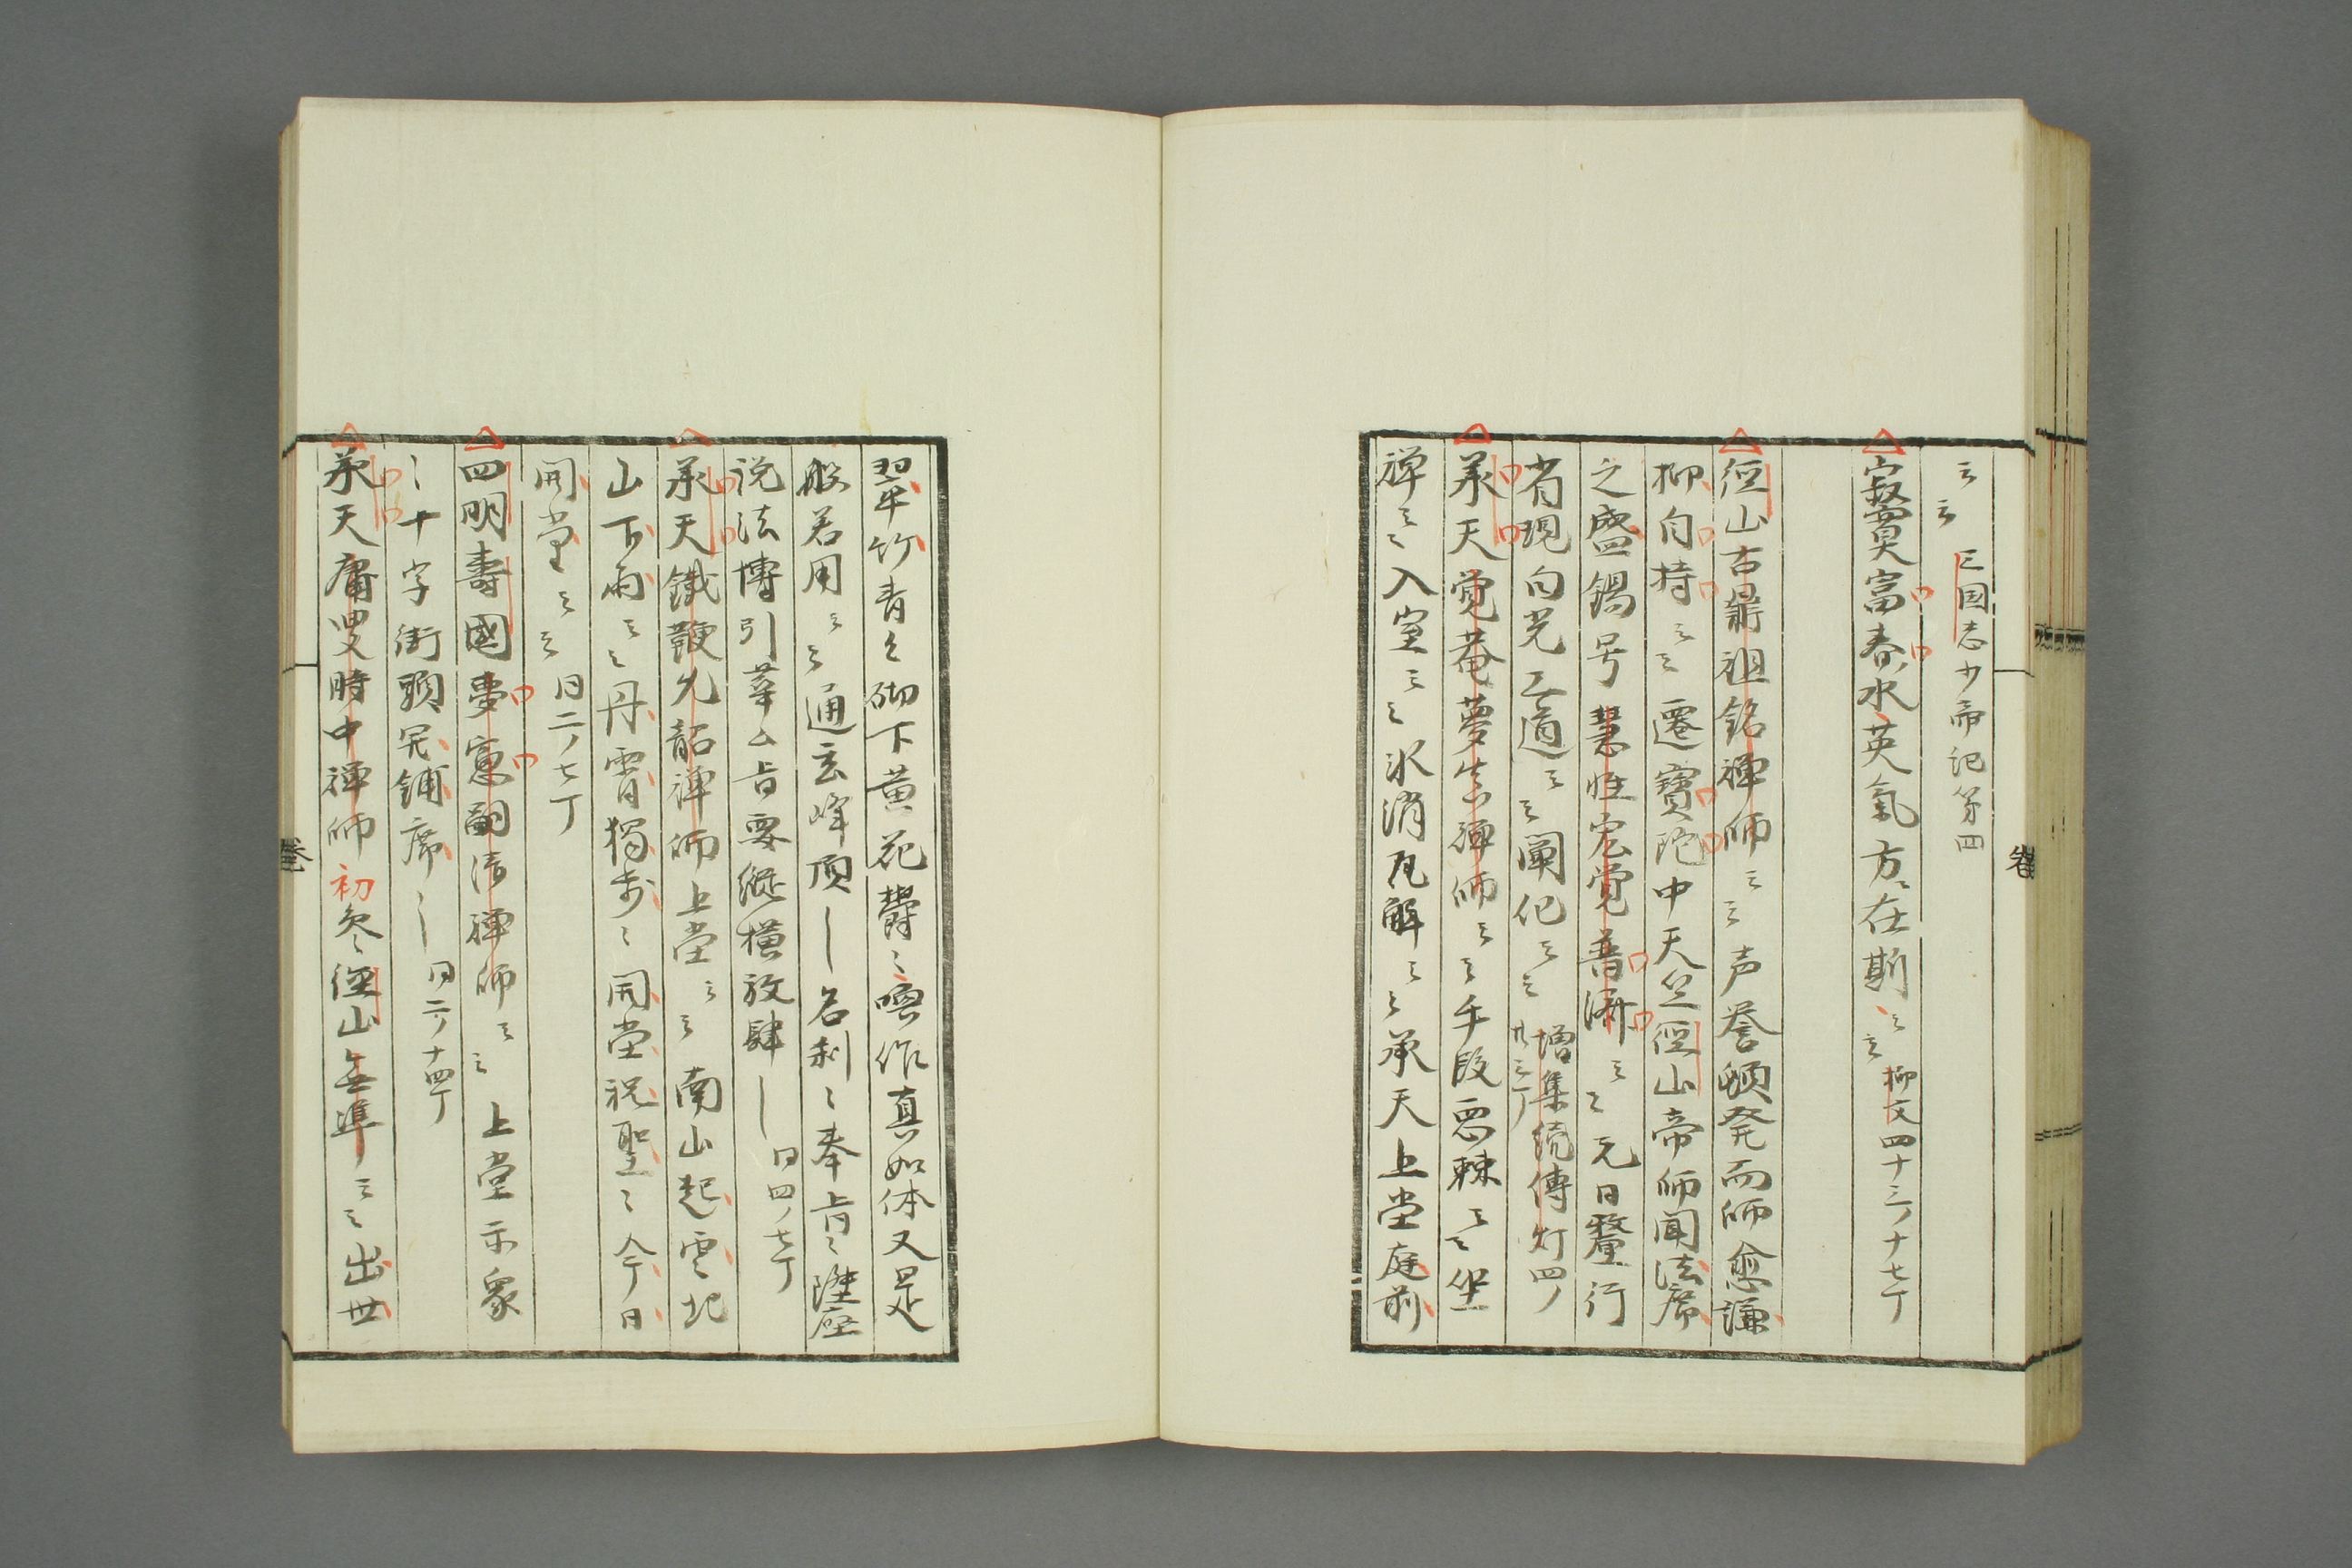 云云 三国志少帝記第四
寂寞富春水英氣方在斯云云 柳文四十三ノ十七丁
徑山古鼎祖銘禅師云云声誉頓発而師愈謙
抑自持云云遷寶陀中天竺徑山帝師聞法席
之盛錫号慧性宏覚普済云云元日整行
省現白光五道云云闡化云云 増集続傳灯四ノ
廿三丁
承天覚菴夢真禅師云云手段悪辣云云坐
禅云云入室云云氷消瓦解云云承天上堂庭前
翠竹青々砌下黄花欝々喚作真如体又是
般若用云云通玄峰頂〡名刹々奉旨々陞座
説法博引華厶旨要縦横放肆〡 同四ノ七丁
承天鐵鞭允韶禅師上堂云云南山起雲北
山下雨云云丹霄獨歩々開堂祝聖々今日
開堂云云 同二ノ七丁
四明壽國夢窓嗣清禅師云云上堂示衆
〻十字街頭開鋪席〡 同六ノ十四丁
承天庸叟時中禅師初参徑山無準云云出世
巻